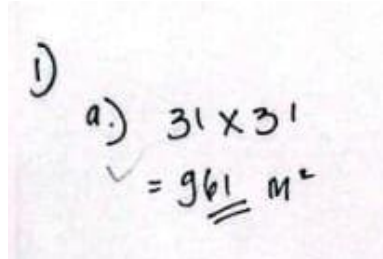 1)
a.) 31 x 31
= 961 m²